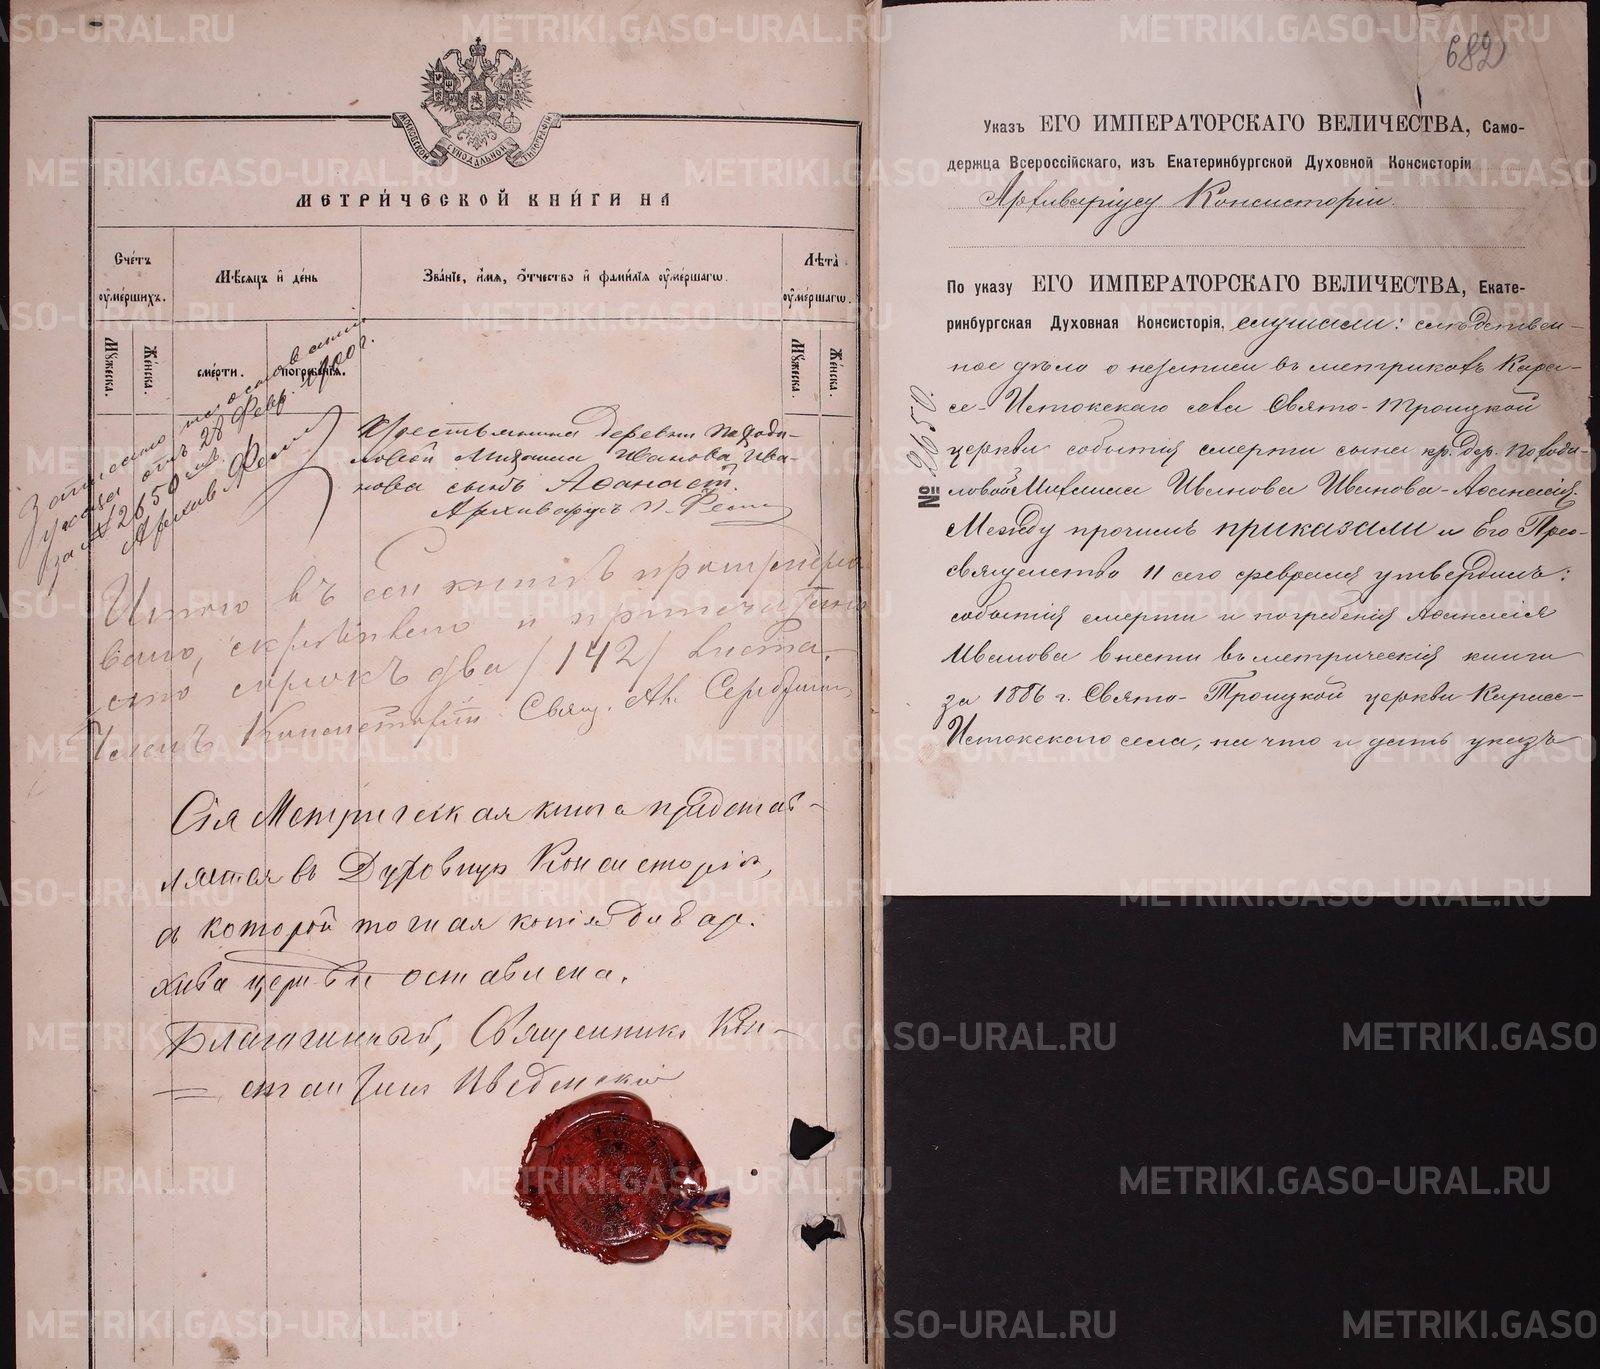 МОСКОВСКОЙ СѴНОДАЛЬНОЙ ТИПОГРАФІИ
МЕТРИ́ЧЕСКОЙ КНИ́ГИ НА
Сче́тъ ᲂу҆ме́ршихъ.
Мѣ́сяцъ и҆ де́нь
Зва́нїе, и҆́мя, ѻ҆́тчество и҆ фами́лїя ᲂу҆ме́ршагѡ.
Лѣ́та ᲂу҆ме́ршагѡ.
Мꙋ́жеска.
Же́нска.
сме́рти.
погребе́нїя.
Мꙋ́жеска.
Же́нска.
Записано на основаніи
указа отъ 28 Февр. 1900 г.
за № 2650
Архивар.
Крестьянина деревни Походи-
ловой Михаила Иванова Ива-
нова сынъ Аѳанасій.
Архиваріусъ
Итого въ сей книгѣ прошнуро-
вано, скрѣплено и припечатано
сто сорокъ два /142/ листа.
Членъ Консисторіи Свящ. Ал. Серебренниковъ
Сія Метрическая книга представ-
ляется въ Духовную Консисторію,
а которой точная копія для ар-
хива церкви оставлена.
Благочинный, Священникъ Кон-
стантинъ Введенскій
682
Указъ ЕГО ИМПЕРАТОРСКАГО ВЕЛИЧЕСТВА, Само-
держца Всероссійскаго, изъ Екатеринбургской Духовной Консисторіи
Архиваріусу Консисторіи.
По указу ЕГО ИМПЕРАТОРСКАГО ВЕЛИЧЕСТВА, Екате-
ринбургская Духовная Консисторія, слушали: слѣдствен-
ное дѣло о незаписи въ метрикахъ Кара-
се-Истокскаго села Свято-Троицкой
церкви событія смерти сына кр. дер. Походи-
ловой Михаила Иванова Иванова-Аѳанасія.
Между прочимъ приказали и Его Прео-
священство 11 сего февраля утвердилъ:
событія смерти и погребенія Аѳанасія
Иванова внести въ метрическія книги
за 1886 г. Свято-Троицкой церкви Карасе-
Истокскаго села, на что и дать указъ
№ 2650
METRIKI.GASO-URAL.RU